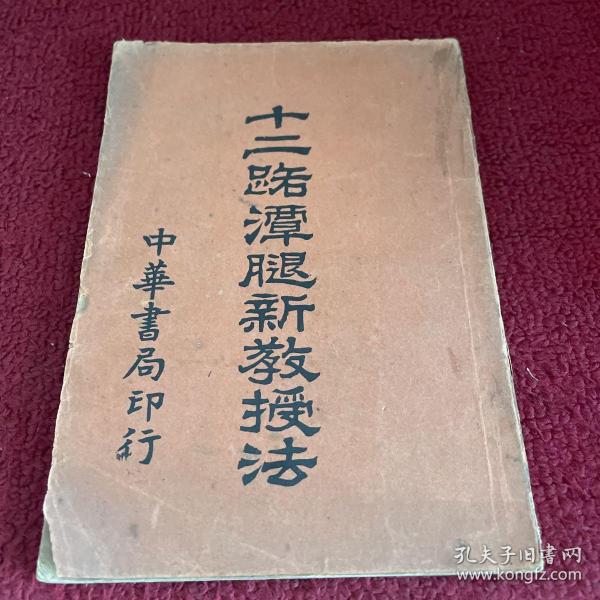 十二路潭腿新教授法
中華書局印行
孔夫子旧书网
www.kongfz.com